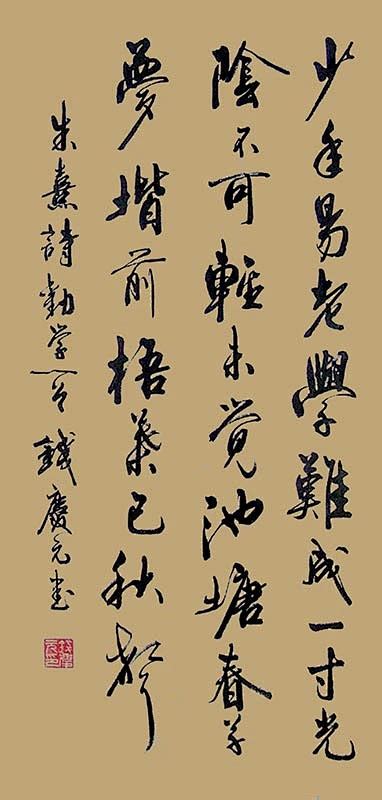 少年易老學難成一寸光
陰不可輕未覚池塘春草
夢堦前梧葉已秋聲
朱熹詩勸学一首錢慶元书